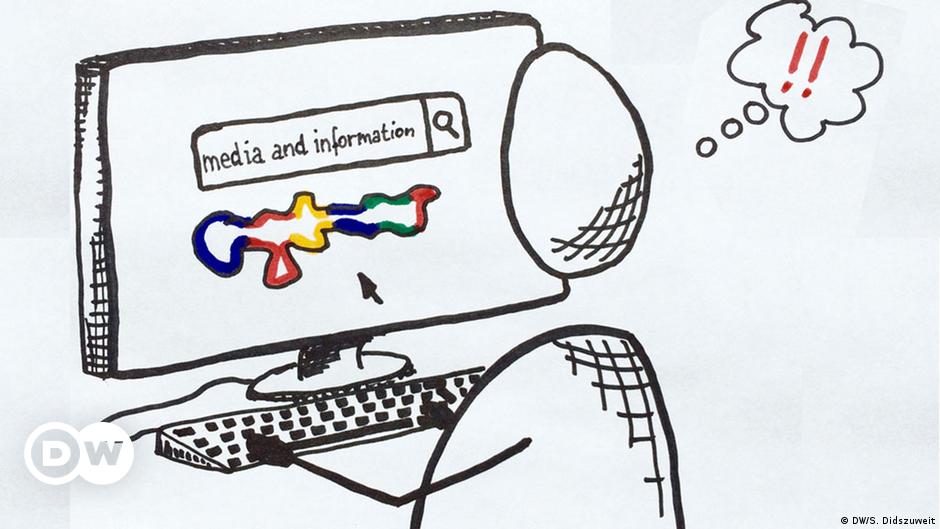 !!
media and information
DW
© DW/S. Didszuweit